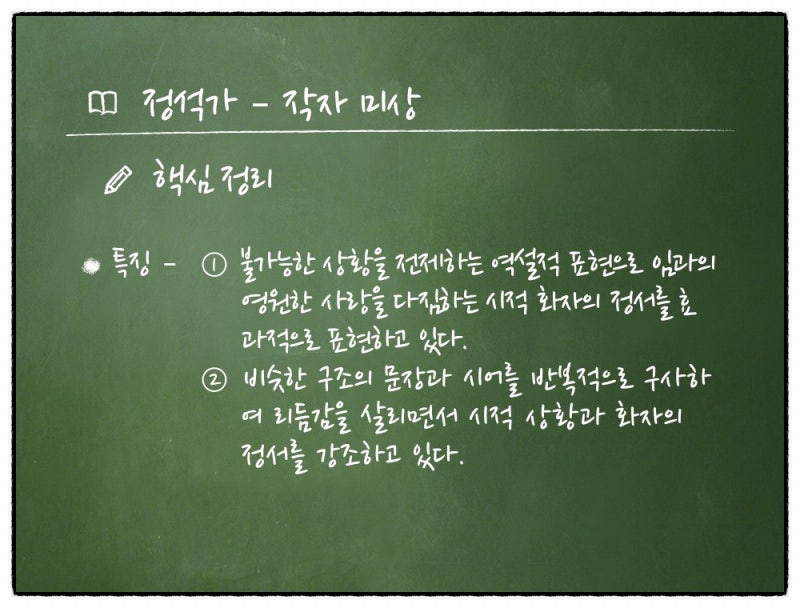 정석가 - 작자 미상
핵심 정리
특징 - ① 불가능한 상황을 전제하는 역설적 표현으로 임과의
영원한 사랑을 다짐하는 시적 화자의 정서를 효
과적으로 표현하고 있다.
② 비슷한 구조의 문장과 시어를 반복적으로 구사하
여 리듬감을 살리면서 시적 상황과 화자의
정서를 강조하고 있다.